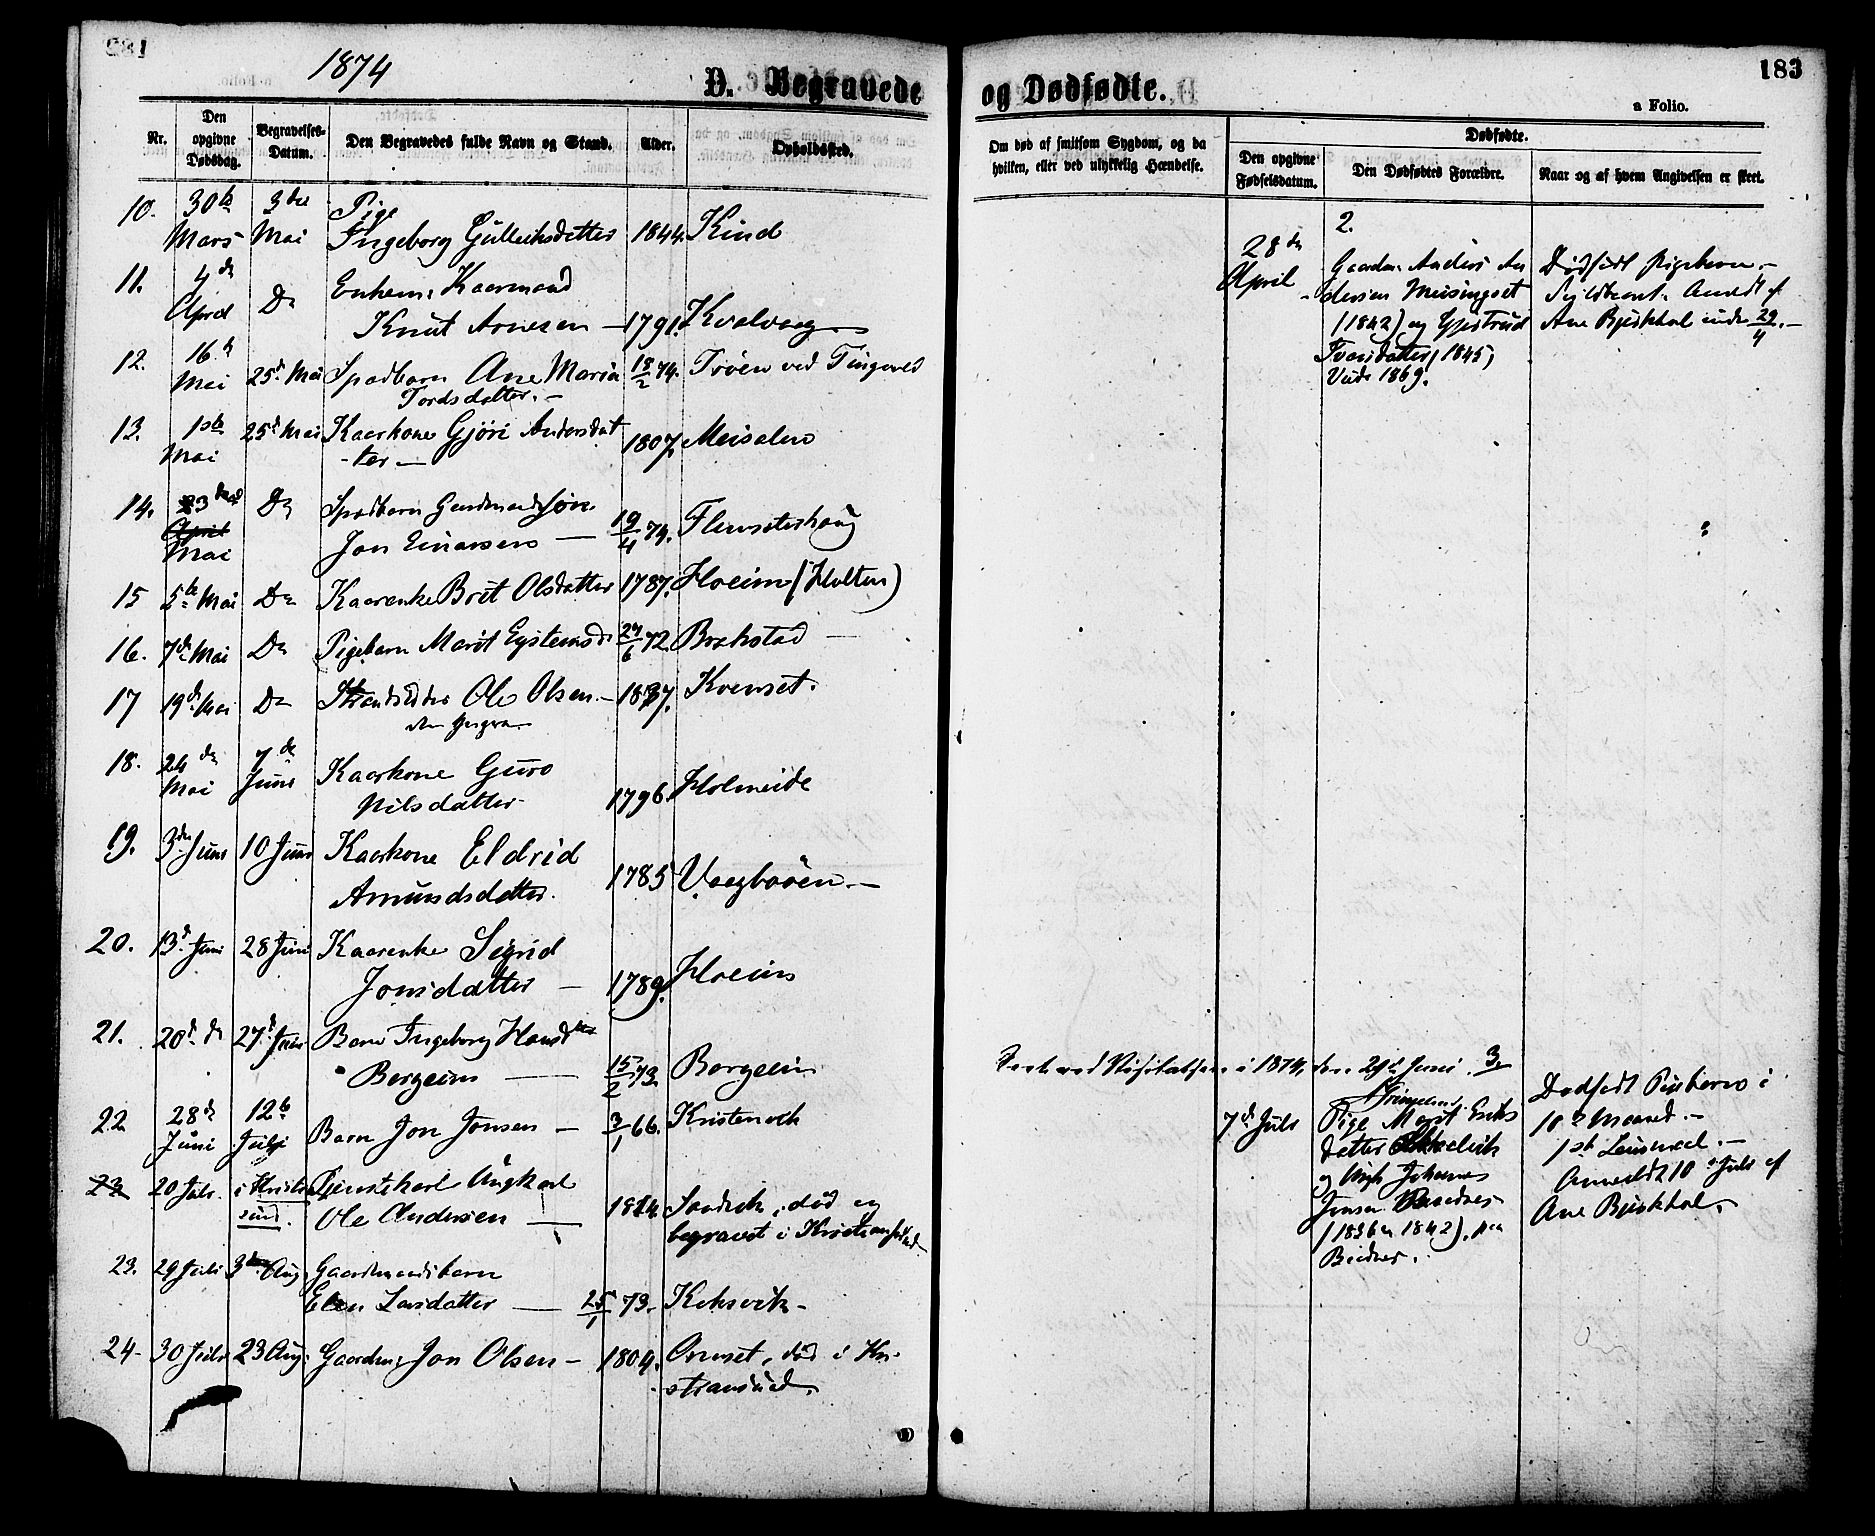 1874
D. Begravede
og Dødfødte.
183
a Folio.
Nr.
Den opgivne Dødsdag.
Begravelses-Datum.
Den Begravedes fulde Navn og Stand.
Alder.
Opholdssted.
Om død af smitsom Sygdom, og da hvilken, eller ved ulykkelig Hændelse.
Dødfødte.
Den opgivne Fødselsdatum.
Den Dødfødtes Forældre.
Naar og af hvem Angivelsen er skeet.
10. 30te Mars 3die Mai Pige
Ingeborg Gulleiksdatter 1844. Kind
11. 4de April Do Enkem. Kaarmand
Knut Arnesen — 1791. Kvalvaag
12. 16d Mai 25d Mai Spædbarn Ane Maria 18/2 74. Trøen ved Tingvold
Tordsdatter. —
13. 1ste Mai 25d Mai Kaarkone Gjöri Andersdat 1807. Meisalen
-ter —
14. 3 April Mai Do Spædbarn Gaardmandssøn
Jon Einarsen — 19/4 74. Flemsæterhaug
15 5te Mai Do Kaarenke Brit Olsdatter 1787. Hoeim (Holten)
16. 7d Mai Do Pigebarn Marit Eystensd. 27/6 72. Brekstad —
17 19d Mai Do Strandsidder Ole Olsen. — 1837. Kvenset.
18. 24de Mai 7de Juni Kaarkone Guro
Nilsdatter 1796. Holmeide
19. 3die Juni 10 Juni Kaarkone Eldrid
Amundsdatter. 1785 Vaagbøen. —
20. 13d Juni 28 Juni Kaarenke Sigrid
Jonsdatter — 1789. Hoeim
21. 20d do 27d Juni Barn Ingeborg Hansdtr
Bergeim — 15/2 73. Bergeim
22 28d Juni 12te Juli Barn Jon Jonsen — 3/1 66. Kristenvik
23 20 Juli i Kristiansund. Tjenestekarl Ungkarl
Ole Andersen — 1824. Sandvik, død og
begravet i Kristiansund
23. 29 Juli 3die Aug. Gaardmandsbarn
Elen Larsdatter — 25/1 73. Koksvik —
24 - 30 Juli 23 Aug. Gaardm. Jon Olsen — 1804. Omset, død i Kri-
stiansund.
2.
28de April
Gaardm. Anders An
dersen Meisingset
(1842) og Gjertrud
Ivarsdatter (1845)
Viede 1869.
Dødfødt Pigebarn. —
Fuldbaart. Anmeldt af
Ane Bjerkhol under 29/4. —
Seet ved Visitatsen i 1874, den 29de Juni
3.
7d Juli
Pige Marit Eriks
datter
og Ungk. Johannes
Jonsen
(1836 og 1842), paa
Dødfødt Pigebarn i
10de Maaned. —
1ste Leiermaal. —
Anmeldt 10de Juli af
Ane Bjerkhol.